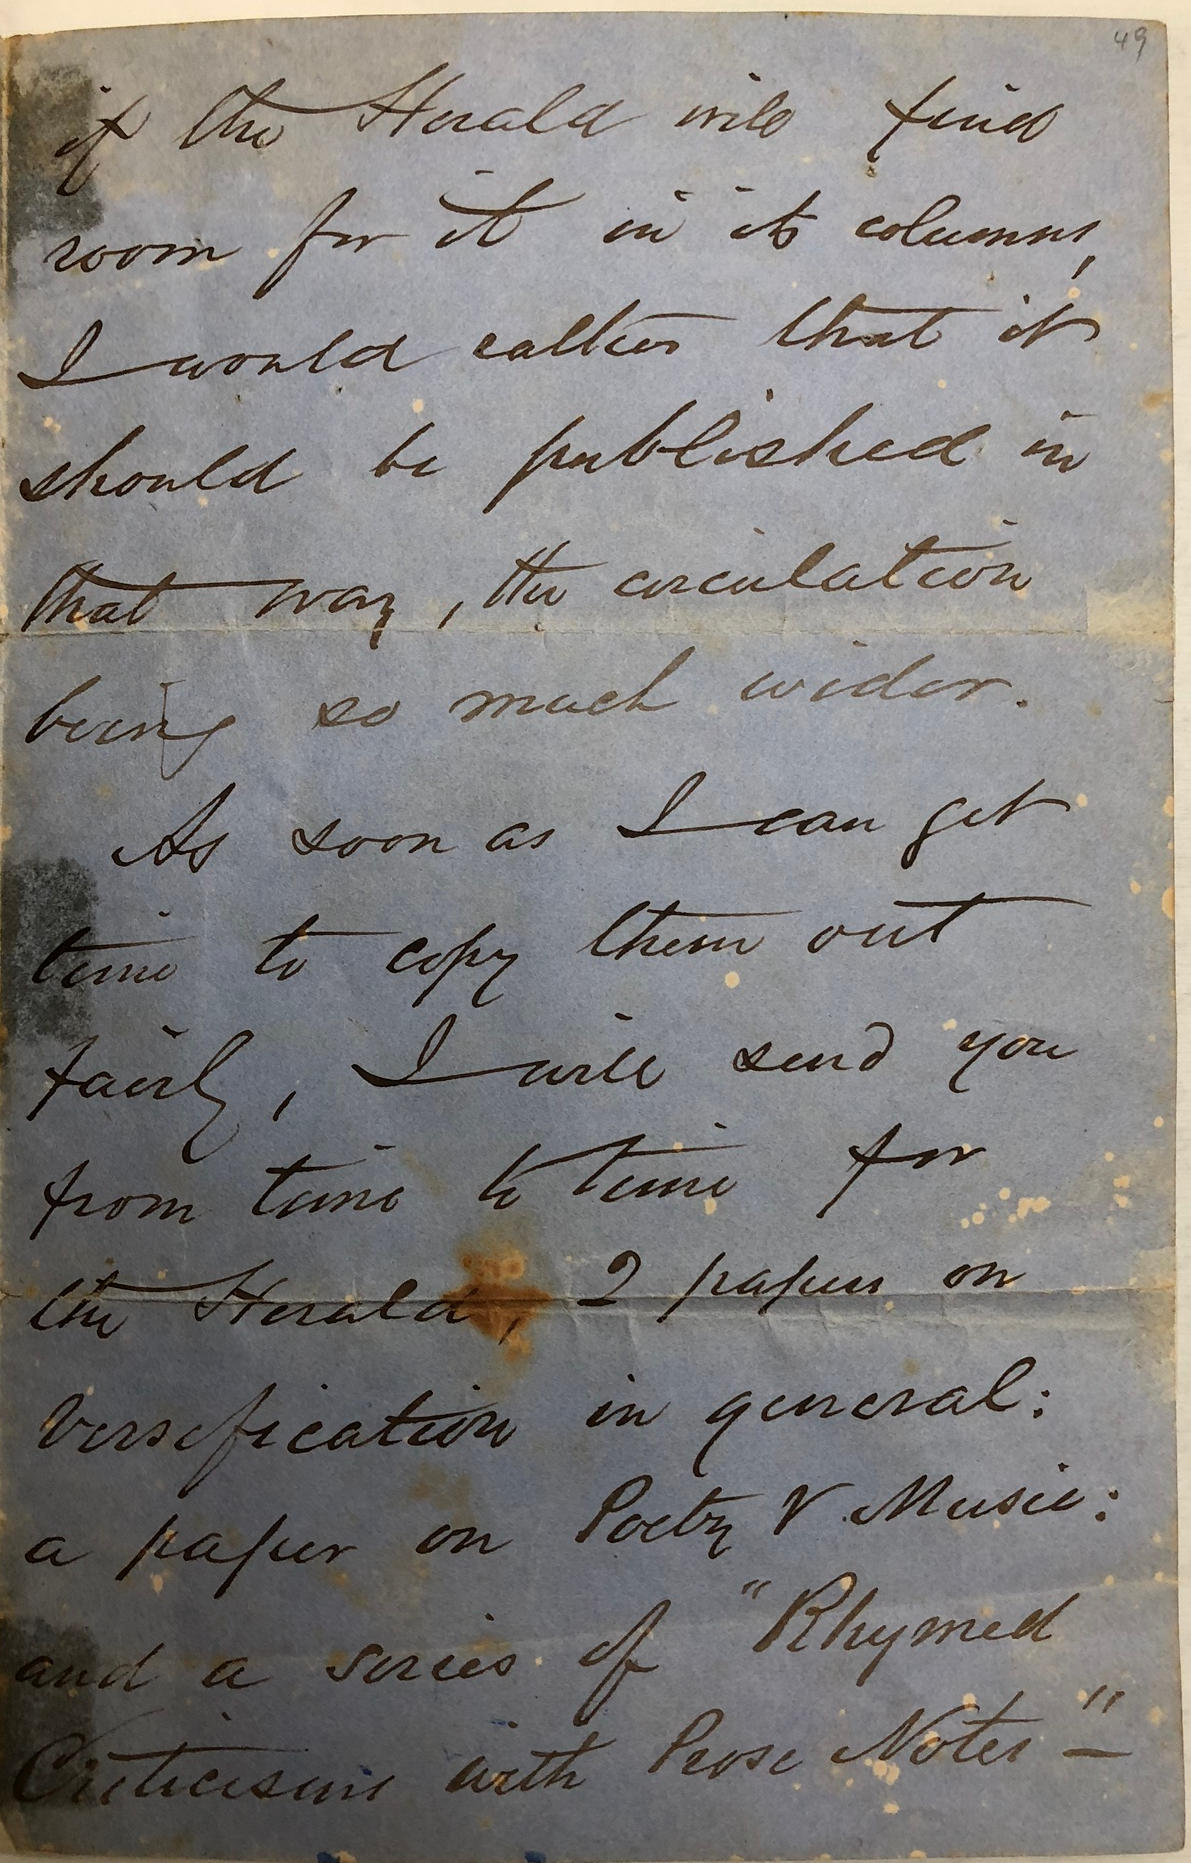 49
if the Herald will find
room for it in its columns,
I would rather that it
should be published in
that way, the circulation
being so much wider.
As soon as I can get
time to copy them out
fairly, I will send you
from time to time for
the Herald, 2 papers on
Versification in general:
a paper on Poetry & Music:
and a series of "Rhymed
Criticisms with Prose Notes" —